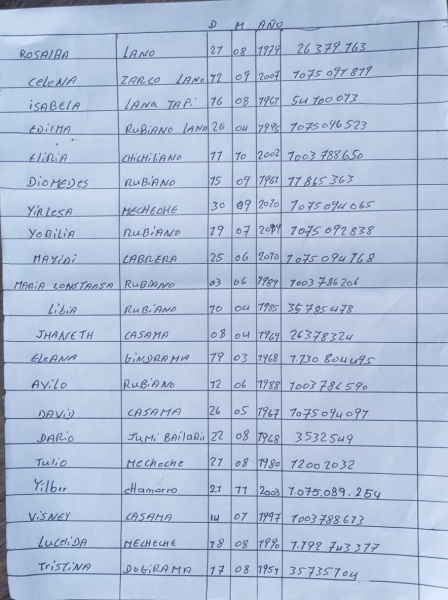 D M AÑO
ROSALBA LANO 27 08 1979 26379763
CELENA ZARCO LANO 12 09 2007 1075091819
ISABELA LANA TAPI 16 08 1961 54100013
EDILMA RUBIANO LANA 26 04 1996 1075096523
ELIRIA CHICHILIANO 11 10 2002 1003788650
DIOMEDES RUBIANO 15 09 1961 11865363
YIRLESA MECHECHE 30 09 2010 1075094065
YORILIA RUBIANO 19 07 1075092838
MAYIDI CABRERA 25 06 2010 1075094168
MARIA CONSTANSA RUBIANO 03 06 1989 1003786206
LIBIA RUBIANO 10 04 1985 35785478
JHANETH CASAMA 08 04 1969 26378324
ELEANA GINDRAMA 19 03 1968 1.130804495
AYILO RUBIANO 12 06 1988 1003786590
DAVID CASAMA 26 05 1967 1075094097
DARIO JUMI BAILARIN 22 08 1968 3532549
TULIO MECHECHE 27 08 1980 12002032
Yilber chamorro 21 11 2003 1.075.089.254
VISNEY CASAMA 14 07 1997 1003788613
LUCELIDA MECHECHE 18 08 1990 1.192 743377
TRISTINA DOGIRAMA 17 08 1951 35735104